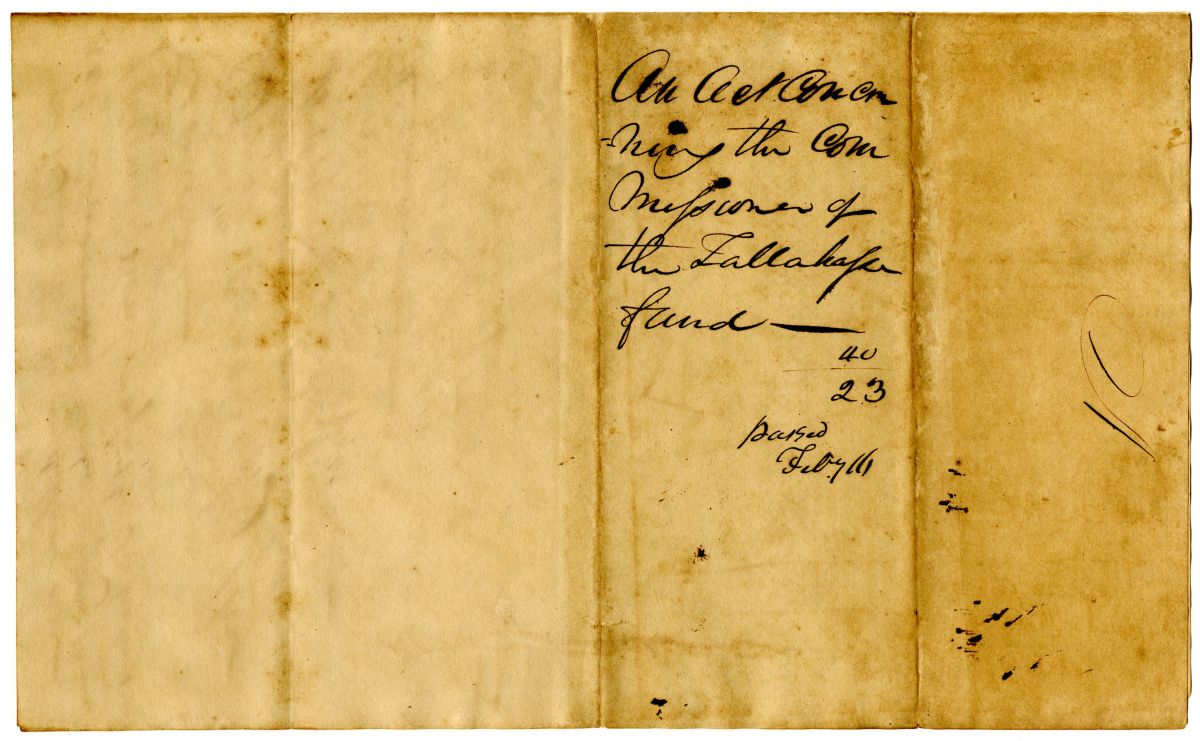 An Act Concer
-ning the Com
Missioner of
the Tallahassee
fund —
40
23
passed
Feby 11